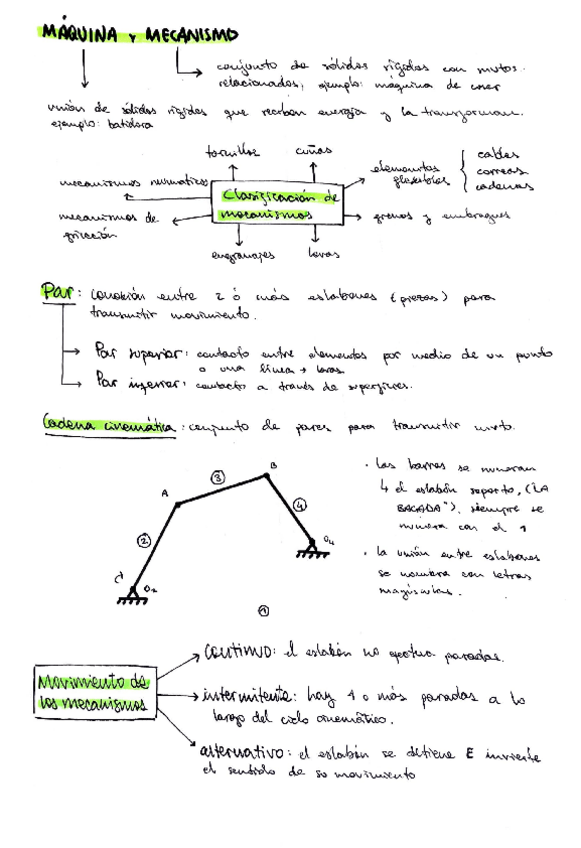 MÁQUINA Y MECANISMO
conjunto de sólidos rígidos con mvtos.
relacionados, ejemplo: máquina de coser
unión de sólidos rígidos que reciben energía y la transforman.
ejemplo: batidora
tornillos
cuñas
mecanismos neumáticos
elementos flexibles
cables
correas
cadenas
Clasificación de
mecanismos
mecanismos de
fricción
frenos y embragues
engranajes
levas
Par: conexión entre 2 ó más eslabones (piezas) para
transmitir movimiento.
Par superior: contacto entre elementos por medio de un punto
o una línea → levas
Par inferior: contacto a través de superficies.
Cadena cinemática: conjunto de pares para transmitir mvto.
A
3
B
2
4
O2
O4
1
· Las barras se numeran
y el eslabón soporte, ("LA
BACADA"), siempre se
numera con el 1
· la unión entre eslabones
se nombra con letras
mayúsculas.
Movimiento de
los mecanismos
continuo: el eslabón no efectua paradas.
intermitente: hay 1 o más paradas a lo
largo del ciclo cinemático.
alternativo: el eslabón se detiene E invierte
el sentido de su movimiento